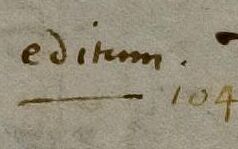 editum.
104